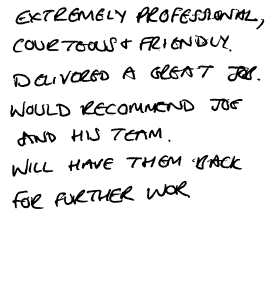 EXTREMELY PROFESSIONAL,
COURTEOUS & FRIENDLY.
DELIVERED A GREAT JOB.
WOULD RECOMMEND JOE
AND HIS TEAM.
WILL HAVE THEM BACK
FOR FURTHER WOR